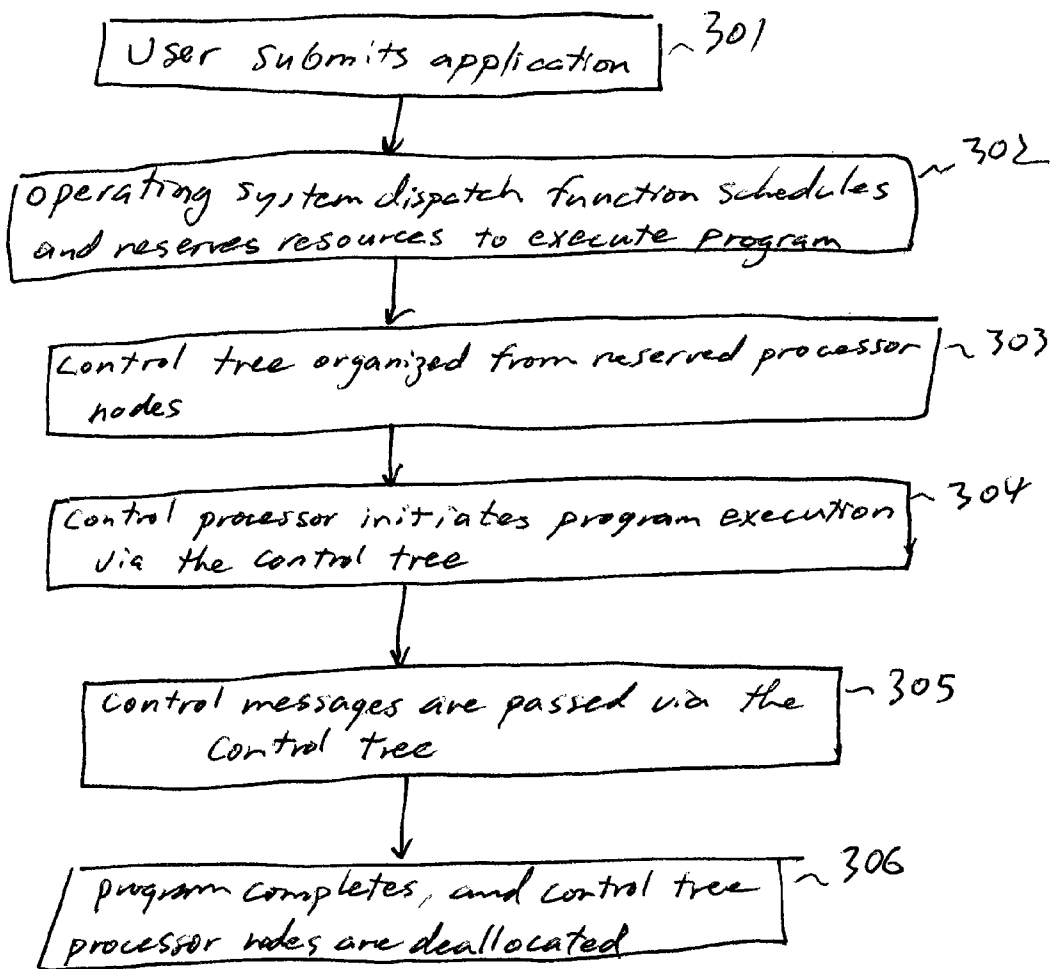 User submits application ~301
operating system dispatch function schedules ~302
and reserves resources to execute program
control tree organized from reserved processor ~303
nodes
control processor initiates program execution ~304
via the control tree
control messages are passed via the ~305
control tree
program completes, and control tree ~306
processor nodes are deallocated